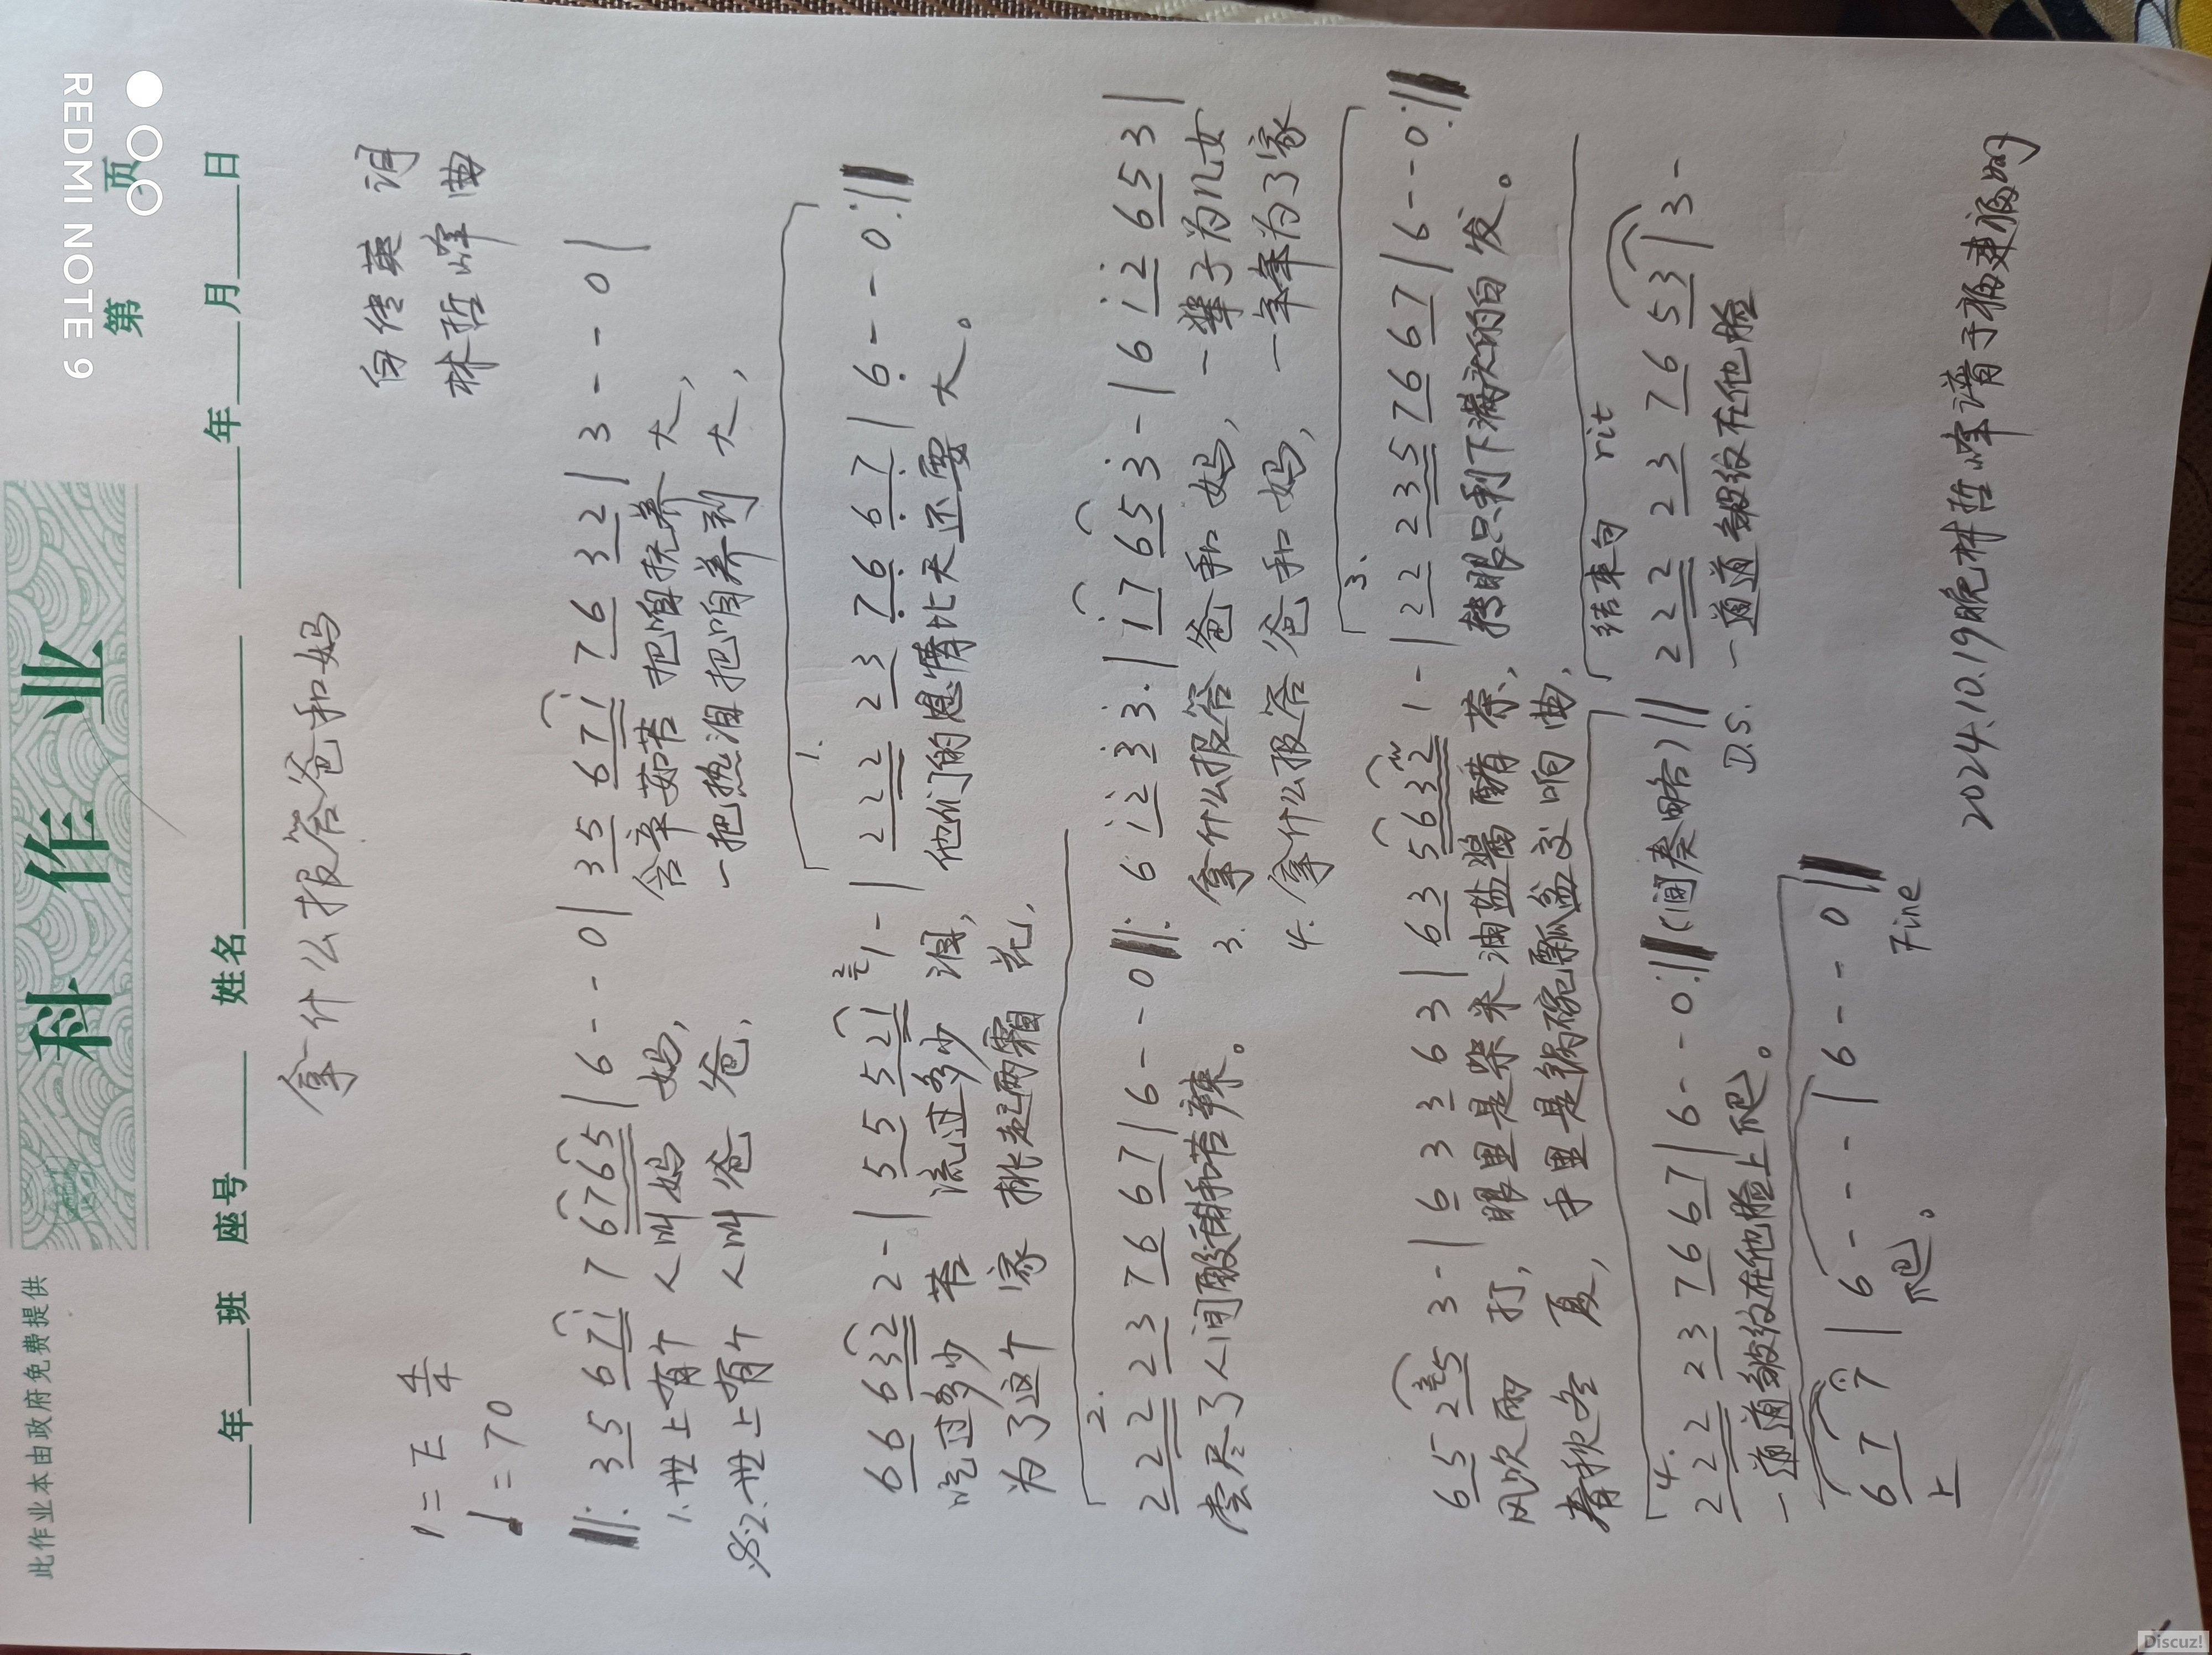 此作业本由政府免费提供
科 作 业
第 页
年 班 座号 姓名 年 月 日
拿什么报答爸和妈
白传英 词
林哲峰 曲
1=E 4/4
♩=70
‖: 3 5 6 7 i 7 6 7 6 5 | 6 - - 0 | 3 5 6 7 i 7 6 3 2 | 3 - - 0 |
1.世上有个 人叫妈 妈, 含辛茹苦 把咱抚养 大,
𝄋2.世上有个 人叫爸 爸, 一把热泪 把咱养到 大,
1.
6 6 6 3 2 2 - | 5 5 5 5 2 1 1 - | 2 2 2 2 3 7 6 6 7 | 6 - - 0 :‖
吃过多少 苦 流过多少 泪, 他们的恩情比天还要 大。
为了这个 家 挑起两霜 花,
2.
2 2 2 2 3 7 6 6 7 | 6 - - 0 ‖: 6 i 2 3 3. | i 7 6 5 3 - | 6 i 2 6 5 3 |
尝尽了人间酸甜和苦辣。 3. 拿什么报答 爸和妈, 一辈子为儿女
4. 拿什么报答 爸和妈, 一年年为了家
3.
6 5 2 3 5 3 - | 6 3 3 6 3 | 6 3 5 5 6 3 2 1 - | 2 2 2 3 5 7 6 6 7 | 6 - - 0 :‖
风吹雨 打, 眼里是柴米 油盐酱醋 茶, 转眼只剩下满头的白 发。
春秋冬 夏, 手里是锅碗瓢盆交响 曲,
4. 结束句 rit
2 2 2 2 3 7 6 6 7 | 6 - - 0 :‖ (间奏略) ‖ 2 2 2 2 3 7 6 5 3 | 3 -
D.S.
一道道皱纹在他脸上爬。 一道道皱纹在他脸
6 7 7 | 6 - - - | 6 - - 0 ‖
上 爬。 Fine
2024.10.19晚林哲峰谱于福建福明
REDMI NOTE 9
Discuz!